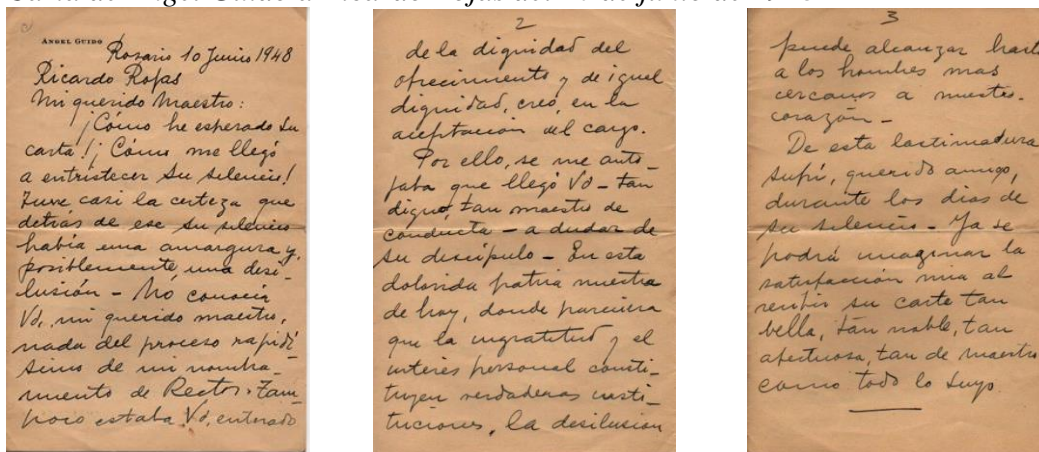 ANGEL GUIDO
Rosario 10 Junio 1948
Ricardo Rojas
Mi querido Maestro:
¡Cómo he esperado su
carta! ¡Cómo me llegó
a entristecer su silencio!
Tuve casi la certeza que
detrás de ese su silencio
había una amargura y,
posiblemente, una desi-
lusión - No conocía
Vd, mi querido maestro,
nada del proceso rapidí
simo de mi nombra-
miento de Rector. Tam
poco estaba Vd, enterado
2
de la dignidad del
ofrecimiento y de igual
dignidad, creo, en la
aceptación del cargo.
Por ello, se me anto-
jaba que llegó Vd - tan
digno, tan maestro de
conducta - a dudar de
su discípulo - En esta
dolorida patria nuestra
de hoy, donde pareciera
que la ingratitud y el
interés personal consti-
tuyen verdaderas insti-
tuciones, la desilusión
3
puede alcanzar hasta
a los hombres mas
cercanos a nuestro
corazón -
De esta lastimadura
sufrí, querido amigo,
durante los dias de
su silencio - Ya se
podrá imaginar la
satisfacción mia al
recibir su carta tan
bella, tan noble, tan
afectuosa, tan de maestro
como todo lo suyo.